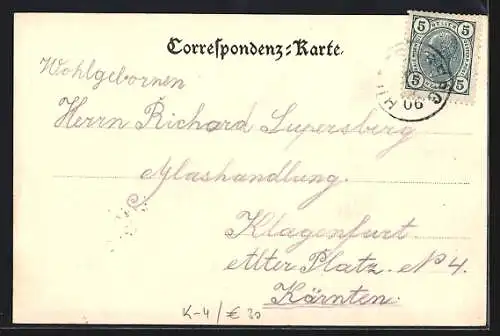 Correspondenz-Karte.
5 HELLER 5
5 5
06
Wohlgebornen
Herrn Richard Supersberg
Glashandlung.
Klagenfurt
Alter Platz. No 4.
Kärnten.
K-4/€ 20